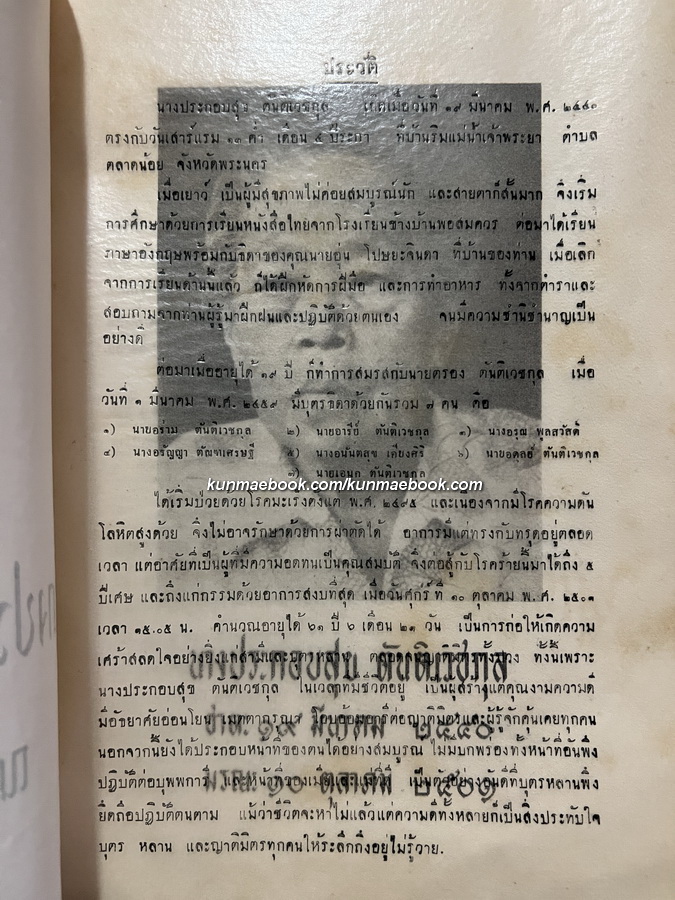 ประวัติ
นางประกอบสุข ตันติเวชกุล เกิดเมื่อวันที่ ๑๙ มีนาคม พ.ศ. ๒๔๔๐
ตรงกับวันเสาร์แรม ๑๓ ค่ำ เดือน ๔ ปีระกา ที่บ้านริมแม่น้ำเจ้าพระยา ตำบล
ตลาดน้อย จังหวัดพระนคร
เมื่อเยาว์ เป็นผู้มีสุขภาพไม่ค่อยสมบูรณ์นัก และสายตาก็สั้นมาก จึงเริ่ม
การศึกษาด้วยการเรียนหนังสือไทยจากโรงเรียนข้างบ้านพอสมควร ต่อมาได้เรียน
ภาษาอังกฤษพร้อมกับธิดาของคุณนายอุ่น โปษยะจินดา ที่บ้านของท่าน เมื่อเลิก
จากการเรียนด้านนี้แล้ว ก็ได้ฝึกหัดการฝีมือ และการทำอาหาร ทั้งจากตำราและ
สอบถามจากท่านผู้รู้มาฝึกฝนและปฏิบัติด้วยตนเอง จนมีความชำนิชำนาญเป็น
อย่างดี
ต่อมาเมื่ออายุได้ ๑๙ ปี ก็ทำการสมรสกับนายตรอง ตันติเวชกุล เมื่อ
วันที่ ๑ มีนาคม พ.ศ. ๒๔๕๙ มีบุตรธิดาด้วยกันรวม ๗ คน คือ
๑) นายอร่าม ตันติเวชกุล ๒) นายอารีย์ ตันติเวชกุล ๓) นางอรุณ พูลสวัสดิ์
๔) นางอรัญญา ตัณฑเศรษฐี ๕) นางอนันตสุข เตียงศิริ ๖) นายอดุลย์ ตันติเวชกุล
๗) นายเอนก ตันติเวชกุล
kunmaebook.com/kunmaebook.com
ได้เริ่มป่วยด้วยโรคมะเร็งตั้งแต่ พ.ศ. ๒๔๙๕ และเนื่องจากมีโรคความดัน
โลหิตสูงด้วย จึงไม่อาจรักษาด้วยการผ่าตัดได้ อาการมีแต่ทรงกับทรุดอยู่ตลอด
เวลา แต่อาศัยที่เป็นผู้ที่มีความอดทนเป็นคุณสมบัติ จึงต่อสู้กับโรคร้ายนี้มาได้ถึง ๕
ปีเศษ และถึงแก่กรรมด้วยอาการสงบที่สุด เมื่อวันศุกร์ที่ ๑๐ ตุลาคม พ.ศ. ๒๕๐๑
เวลา ๑๕.๐๕ น. คำนวณอายุได้ ๖๑ ปี ๖ เดือน ๒๑ วัน เป็นการก่อให้เกิดความ
เศร้าสลดใจอย่างยิ่งแก่สามีและบุตรหลาน ตลอดทั้งญาติมิตรทั้งปวง ทั้งนี้เพราะ
นางประกอบสุข ตันติเวชกุล ในเวลาที่มีชีวิตอยู่ เป็นผู้สร้างแต่คุณงามความดี
มีอัธยาศัยอ่อนโยน เมตตากรุณา โอบอ้อมอารีต่อญาติมิตรและผู้รู้จักคุ้นเคยทุกคน
นอกจากนี้ยังได้ประกอบหน้าที่ของตนได้อย่างสมบูรณ์ ไม่มีบกพร่องทั้งหน้าที่อันพึง
ปฏิบัติต่อบุพพการี และหน้าที่ของเมียและแม่ที่ดี เป็นตัวอย่างอันดีที่บุตรหลานพึง
ยึดถือปฏิบัติตนตาม แม้ว่าชีวิตจะหาไม่แล้วแต่ความดีทั้งหลายก็เป็นสิ่งประทับใจ
บุตร หลาน และญาติมิตรทุกคนให้ระลึกถึงอยู่ไม่รู้วาย.